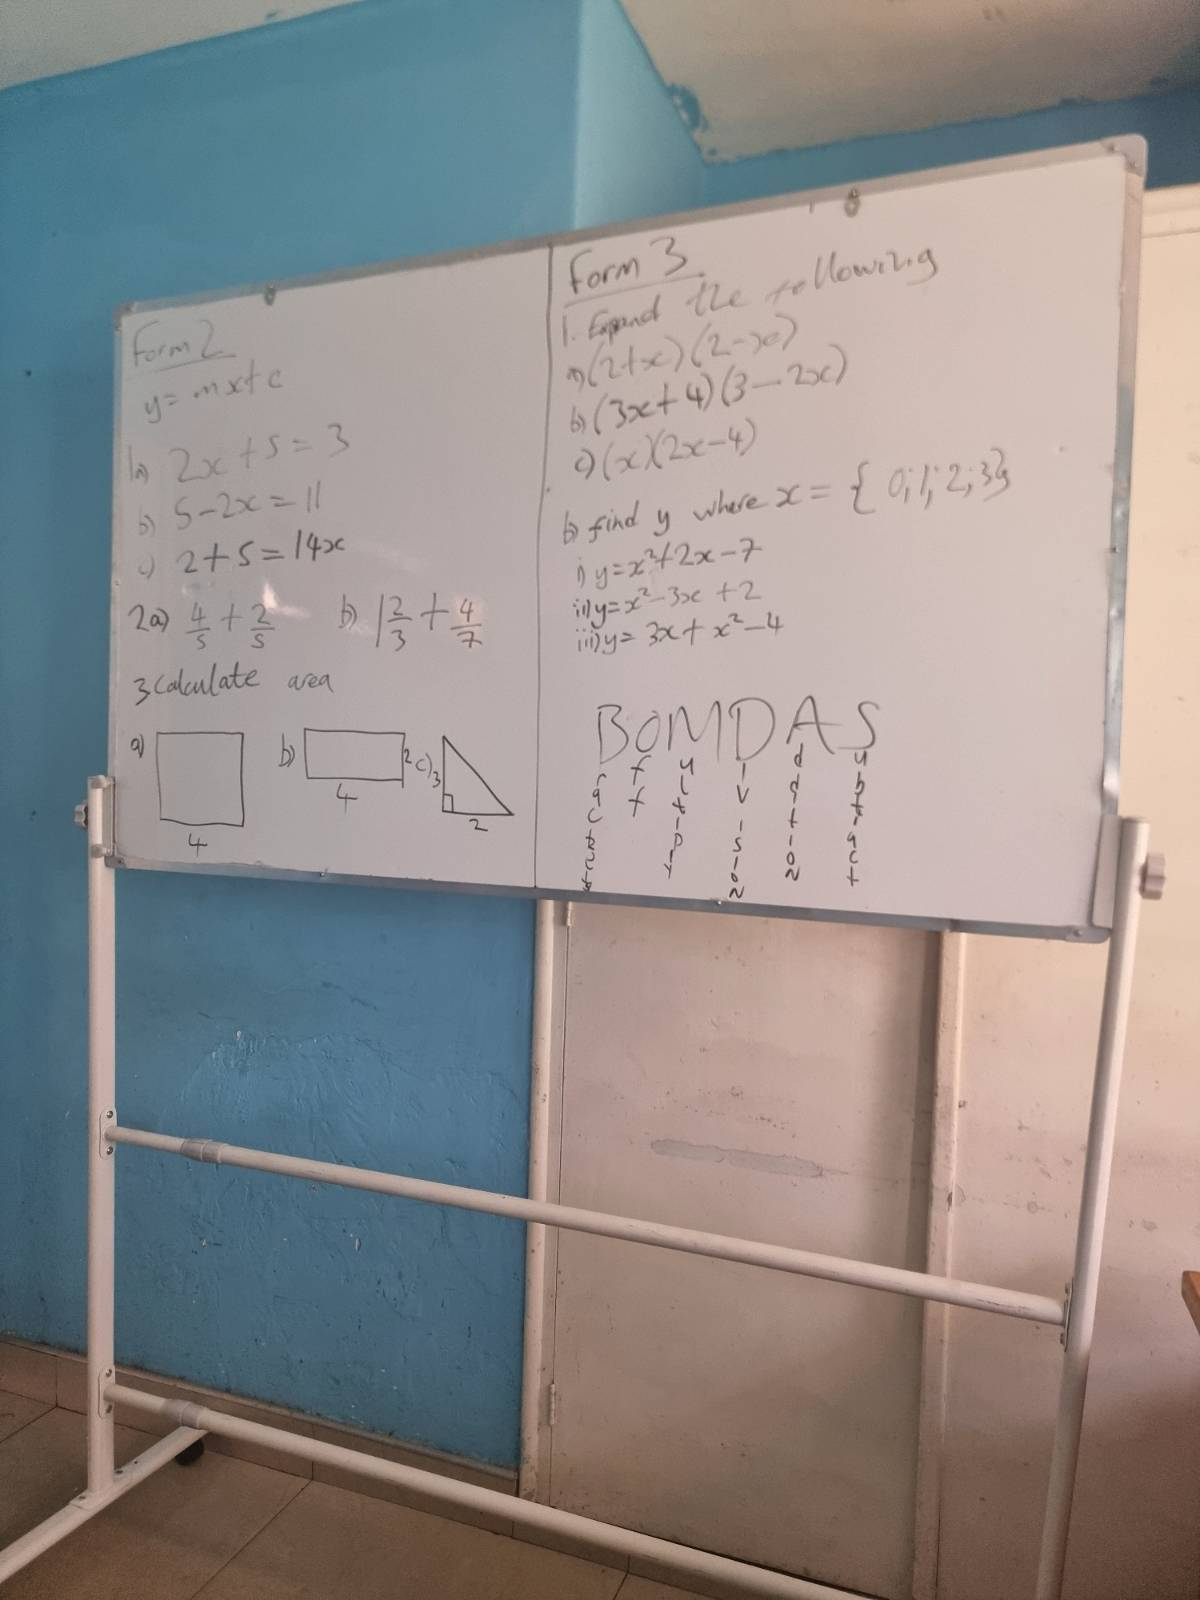 Form 2
y = mx + c
1a) 2x + 5 = 3
b) 5 - 2x = 11
c) 2 + 5 = 14x
2a) 4/5 + 2/5 b) 1 2/3 + 4/7
3 Calculate area
a) 4 b) 4 2 c) 3 2
Form 3
1. Expand the following
a) (2+x)(2-x)
b) (3x+4)(3-2x)
c) (x)(2x-4)
b) find y where x = { 0; 1; 2; 3}
i) y = x² + 2x - 7
ii) y = x² - 3x + 2
iii) y = 3x + x² - 4
BOMDAS
off
Multiply
Division
Addition
Subtract